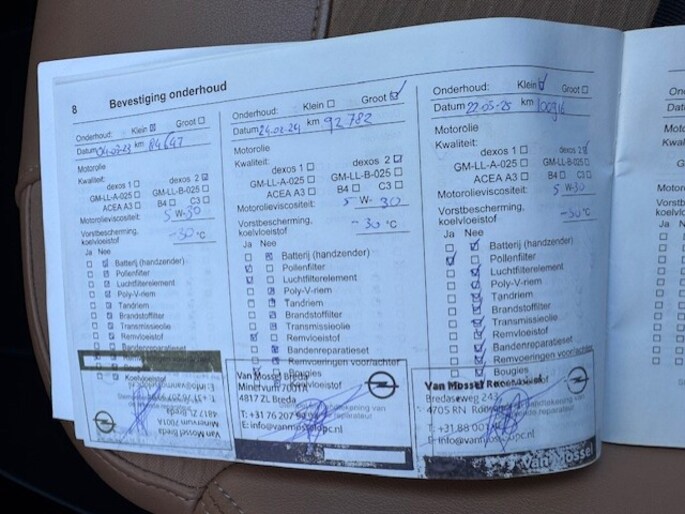 8 Bevestiging onderhoud
Onderhoud: Klein Groot
Datum 04-07-23 km
Motorolie
Kwaliteit:
dexos 1 dexos 2
GM-LL-A-025 GM-LL-B-025
ACEA A3 B4 C3
Motorolieviscositeit: 5 W-30
Vorstbescherming, koelvloeistof -30 °C
Ja Nee
Batterij (handzender)
Pollenfilter
Luchtfilterelement
Poly-V-riem
Tandriem
Brandstoffilter
Transmissieolie
Remvloeistof
Bandenreparatieset
Koelvloeistof
Van Mossel Breda
Minervum 7001A
4817 ZL Breda
Onderhoud: Klein Groot
Datum 24.02.24 km 92 782
Motorolie
Kwaliteit:
dexos 1 dexos 2
GM-LL-A-025 GM-LL-B-025
ACEA A3 B4 C3
Motorolieviscositeit: 5 W- 30
Vorstbescherming,
koelvloeistof -30 °C
Ja Nee
Batterij (handzender)
Pollenfilter
Luchtfilterelement
Poly-V-riem
Tandriem
Brandstoffilter
Transmissieolie
Remvloeistof
Bandenreparatieset
Remvoeringen voor/achter
Bougies
Van Mossel Breda
Minervum 7001A
4817 ZL Breda
T: +31 76 207
E: info@vanmossel
Onderhoud: Klein Groot
Datum 22-05-25 km
Motorolie
Kwaliteit:
dexos 1 dexos 2
GM-LL-A-025 GM-LL-B-025
ACEA A3 B4 C3
Motorolieviscositeit: 5 W-30
Vorstbescherming,
koelvloeistof -30 °C
Ja Nee
Batterij (handzender)
Pollenfilter
Luchtfilterelement
Poly-V-riem
Tandriem
Brandstoffilter
Transmissieolie
Remvloeistof
Bandenreparatieset
Remvoeringen voor/achter
Bougies
Van Mossel
Bredaseweg
4705 RN
T: +31 88 001
E: info@vanmossel
Van Mossel